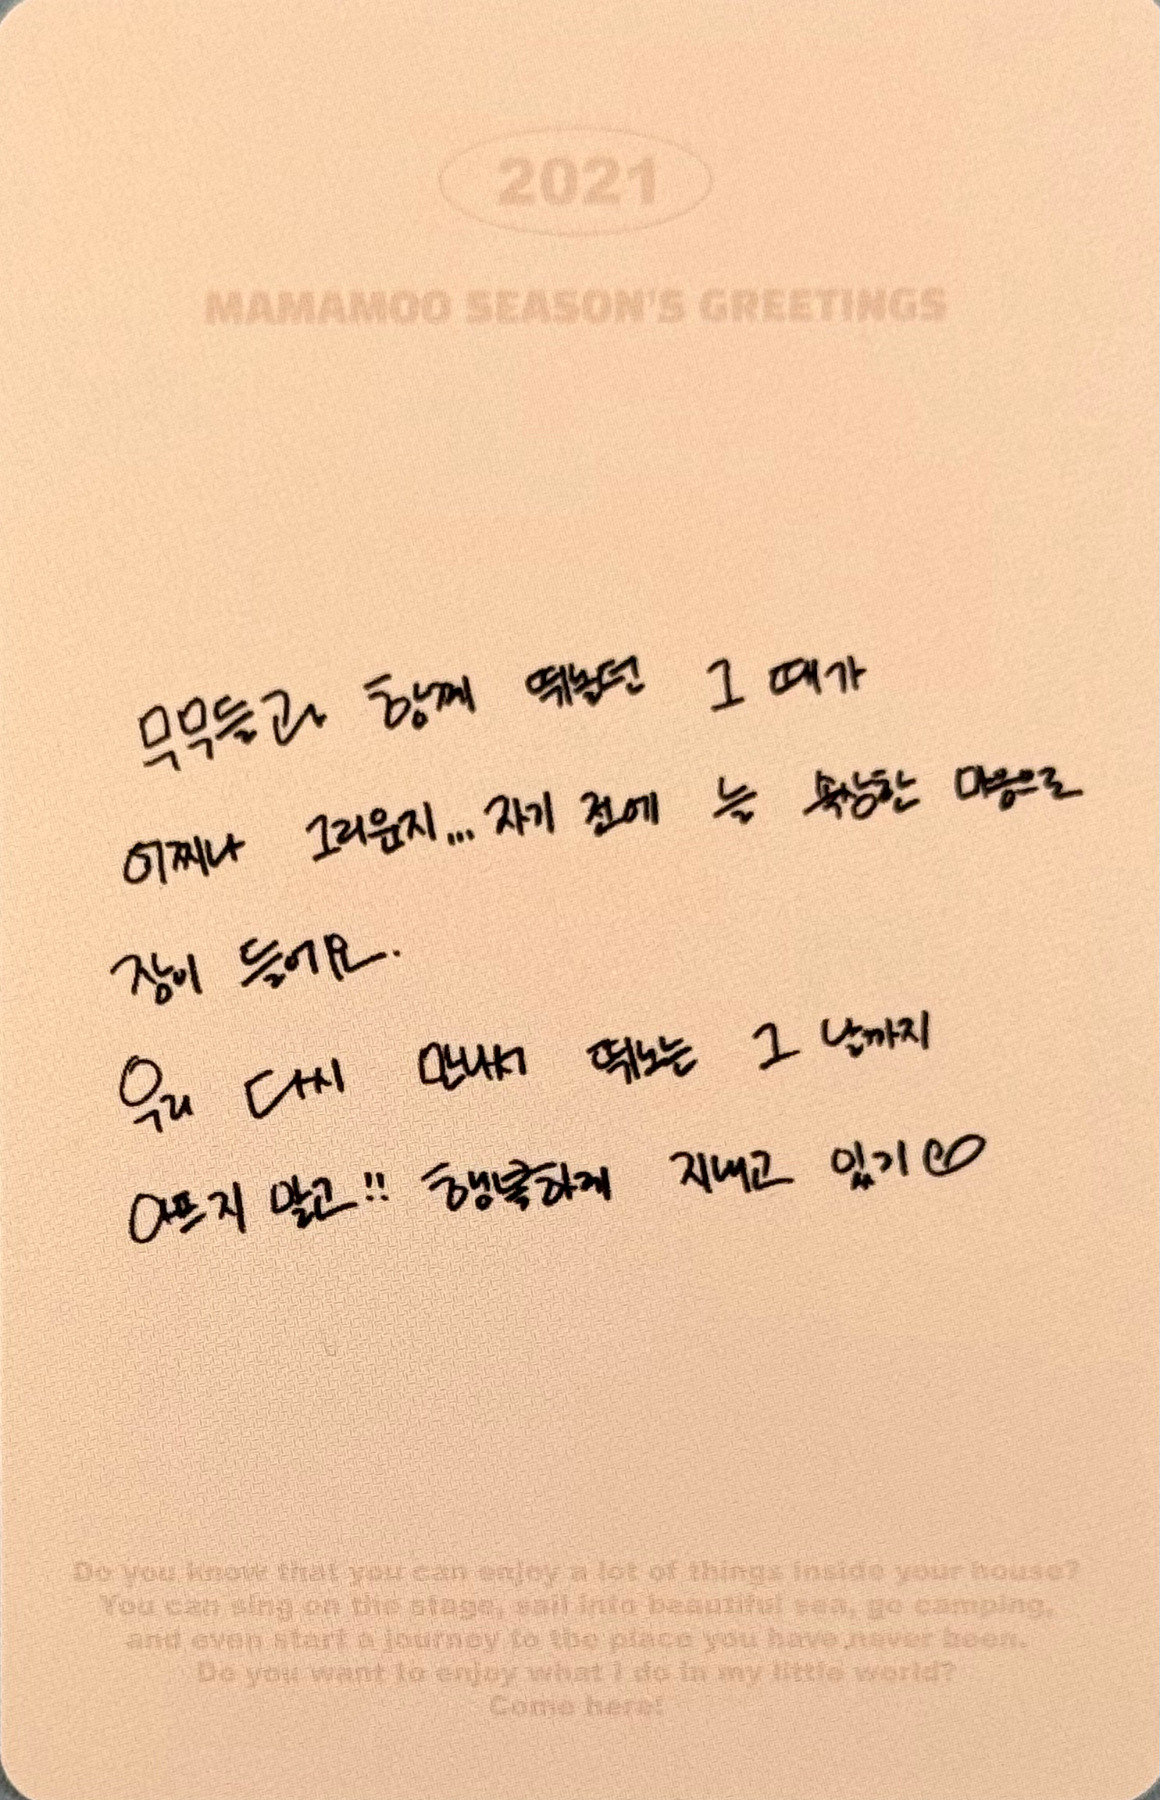 2021
MAMAMOO SEASON'S GREETINGS
무무들과 함께 뛰놀던 그 때가
어찌나 그리운지... 자기 전에 늘 속상한 마음으로
잠이 들어요.
우리 다시 만나서 뛰노는 그 날까지
아프지 말고!! 행복하게 지내고 있기♡
Do you know that you can enjoy a lot of things inside your house?
You can sing on the stage, sail into beautiful sea, go camping,
and even start a journey to the place you have never been.
Do you want to enjoy what I do in my little world?
Come here!